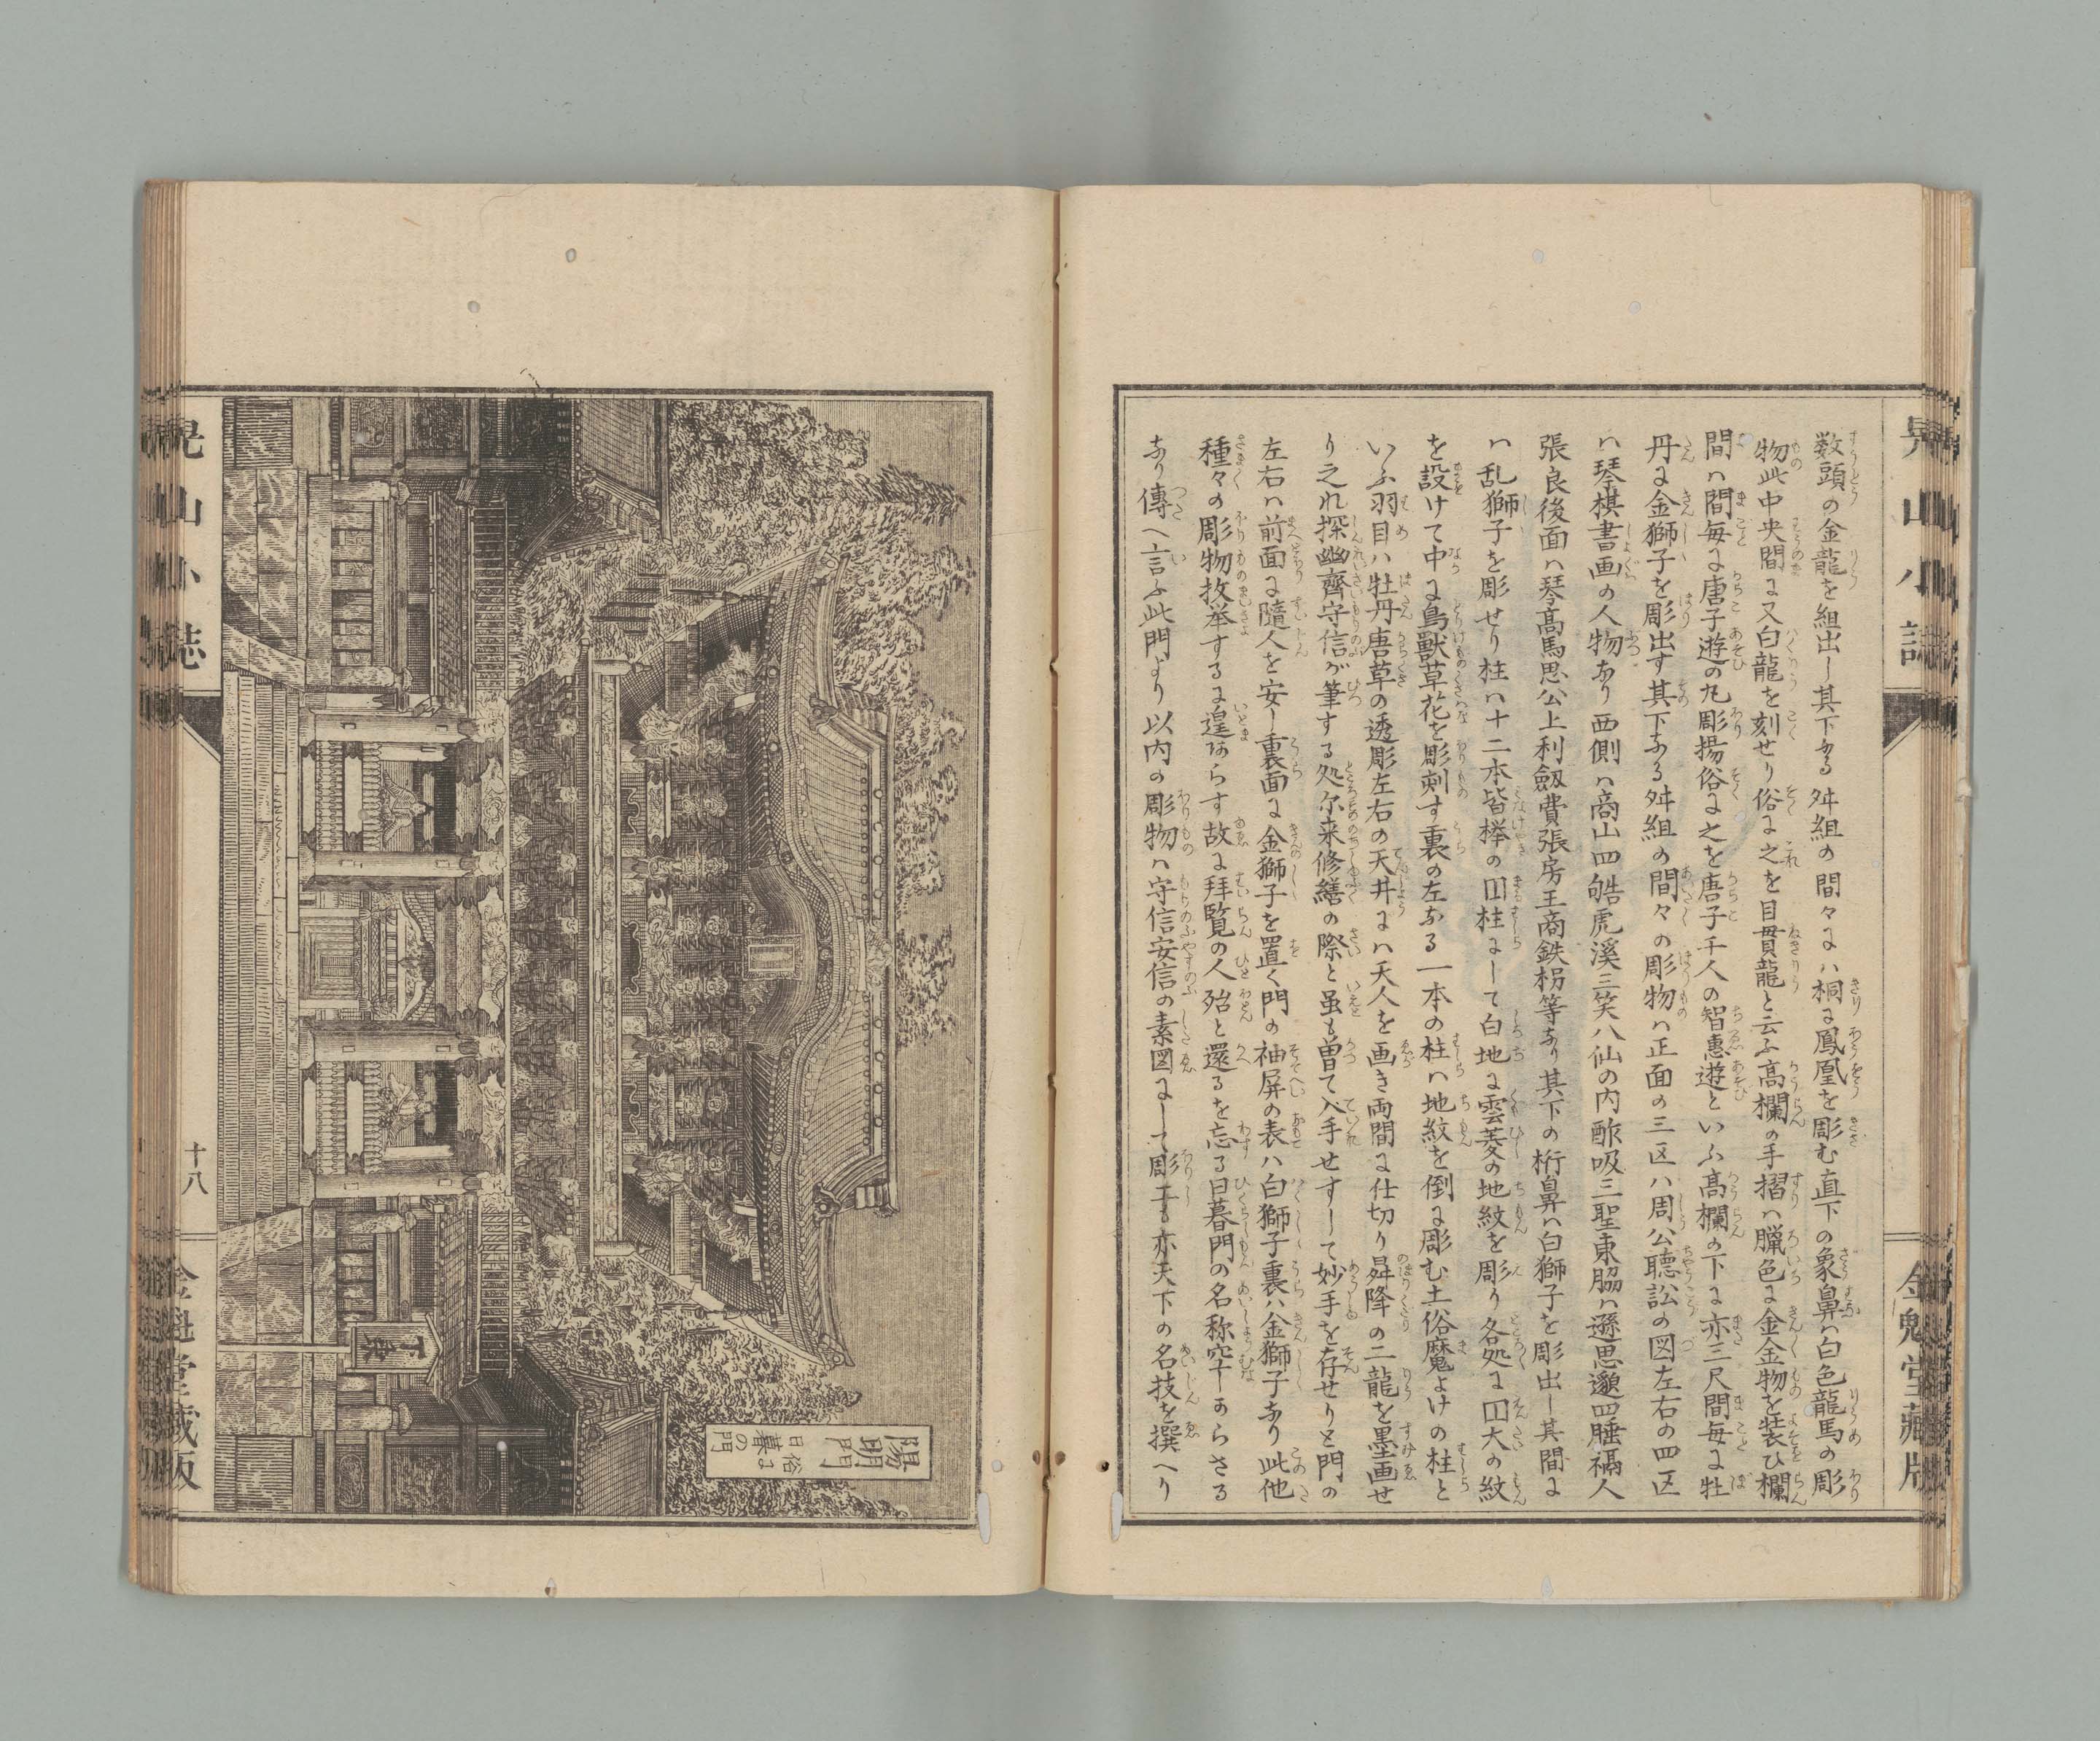 晃山小誌
金魁堂蔵版
数頭の金龍を組出し其下なる舛組の間々に八桐に鳳凰を彫む直下の象鼻ハ白色龍馬の彫
物此中央間に又白龍を刻せり俗に之を目貫龍と云ふ高欄の手摺ハ臘色に金金物を装ひ欄
間ハ間毎に唐子遊の丸彫揚俗に之を唐子千人の智惠遊といふ高欄の下に亦三尺間毎に牡
丹に金獅子を彫出す其下なる舛組の間々の彫物ハ正面の三区ハ周公聴訟の図左右の四区
ハ琴棋書画の人物あり西側ハ商山四皓虎溪三笑八仙の内酢吸三聖東脇ハ遜思邈四睡禍人
張良後面ハ琴高馬思公上利劔費張房王商鉄拐等あり其下の桁鼻ハ白獅子を彫出し其間に
ハ乱獅子を彫せり柱ハ十二本皆欅の円柱にして白地に雲菱の地紋を彫り各処に円大の紋
を設けて中に鳥獣草花を彫刻す裏の左なる一本の柱ハ地紋を倒に彫む土俗魔よけの柱と
いふ羽目ハ牡丹唐草の透彫左右の天井にハ天人を画き両間に仕切り昇降の二龍を墨画せ
り之れ探幽齋守信が筆する処尓来修繕の際と虽も曽て入手せすして妙手を存せりと門の
左右ハ前面に隨人を安し裏面に金獅子を置く門の袖屏の表ハ白獅子裏ハ金獅子なり此他
種々の彫物枚挙するに遑あらす故に拜覧の人殆と還るを忘る日暮門の名称空しからさる
なり傳へ言ふ此門より以内の彫物ハ守信安信の素図にして彫工も亦天下の名技を撰へり
陽明門
俗に
日暮の門
下乗
晃山小誌
十八
金魁堂蔵版